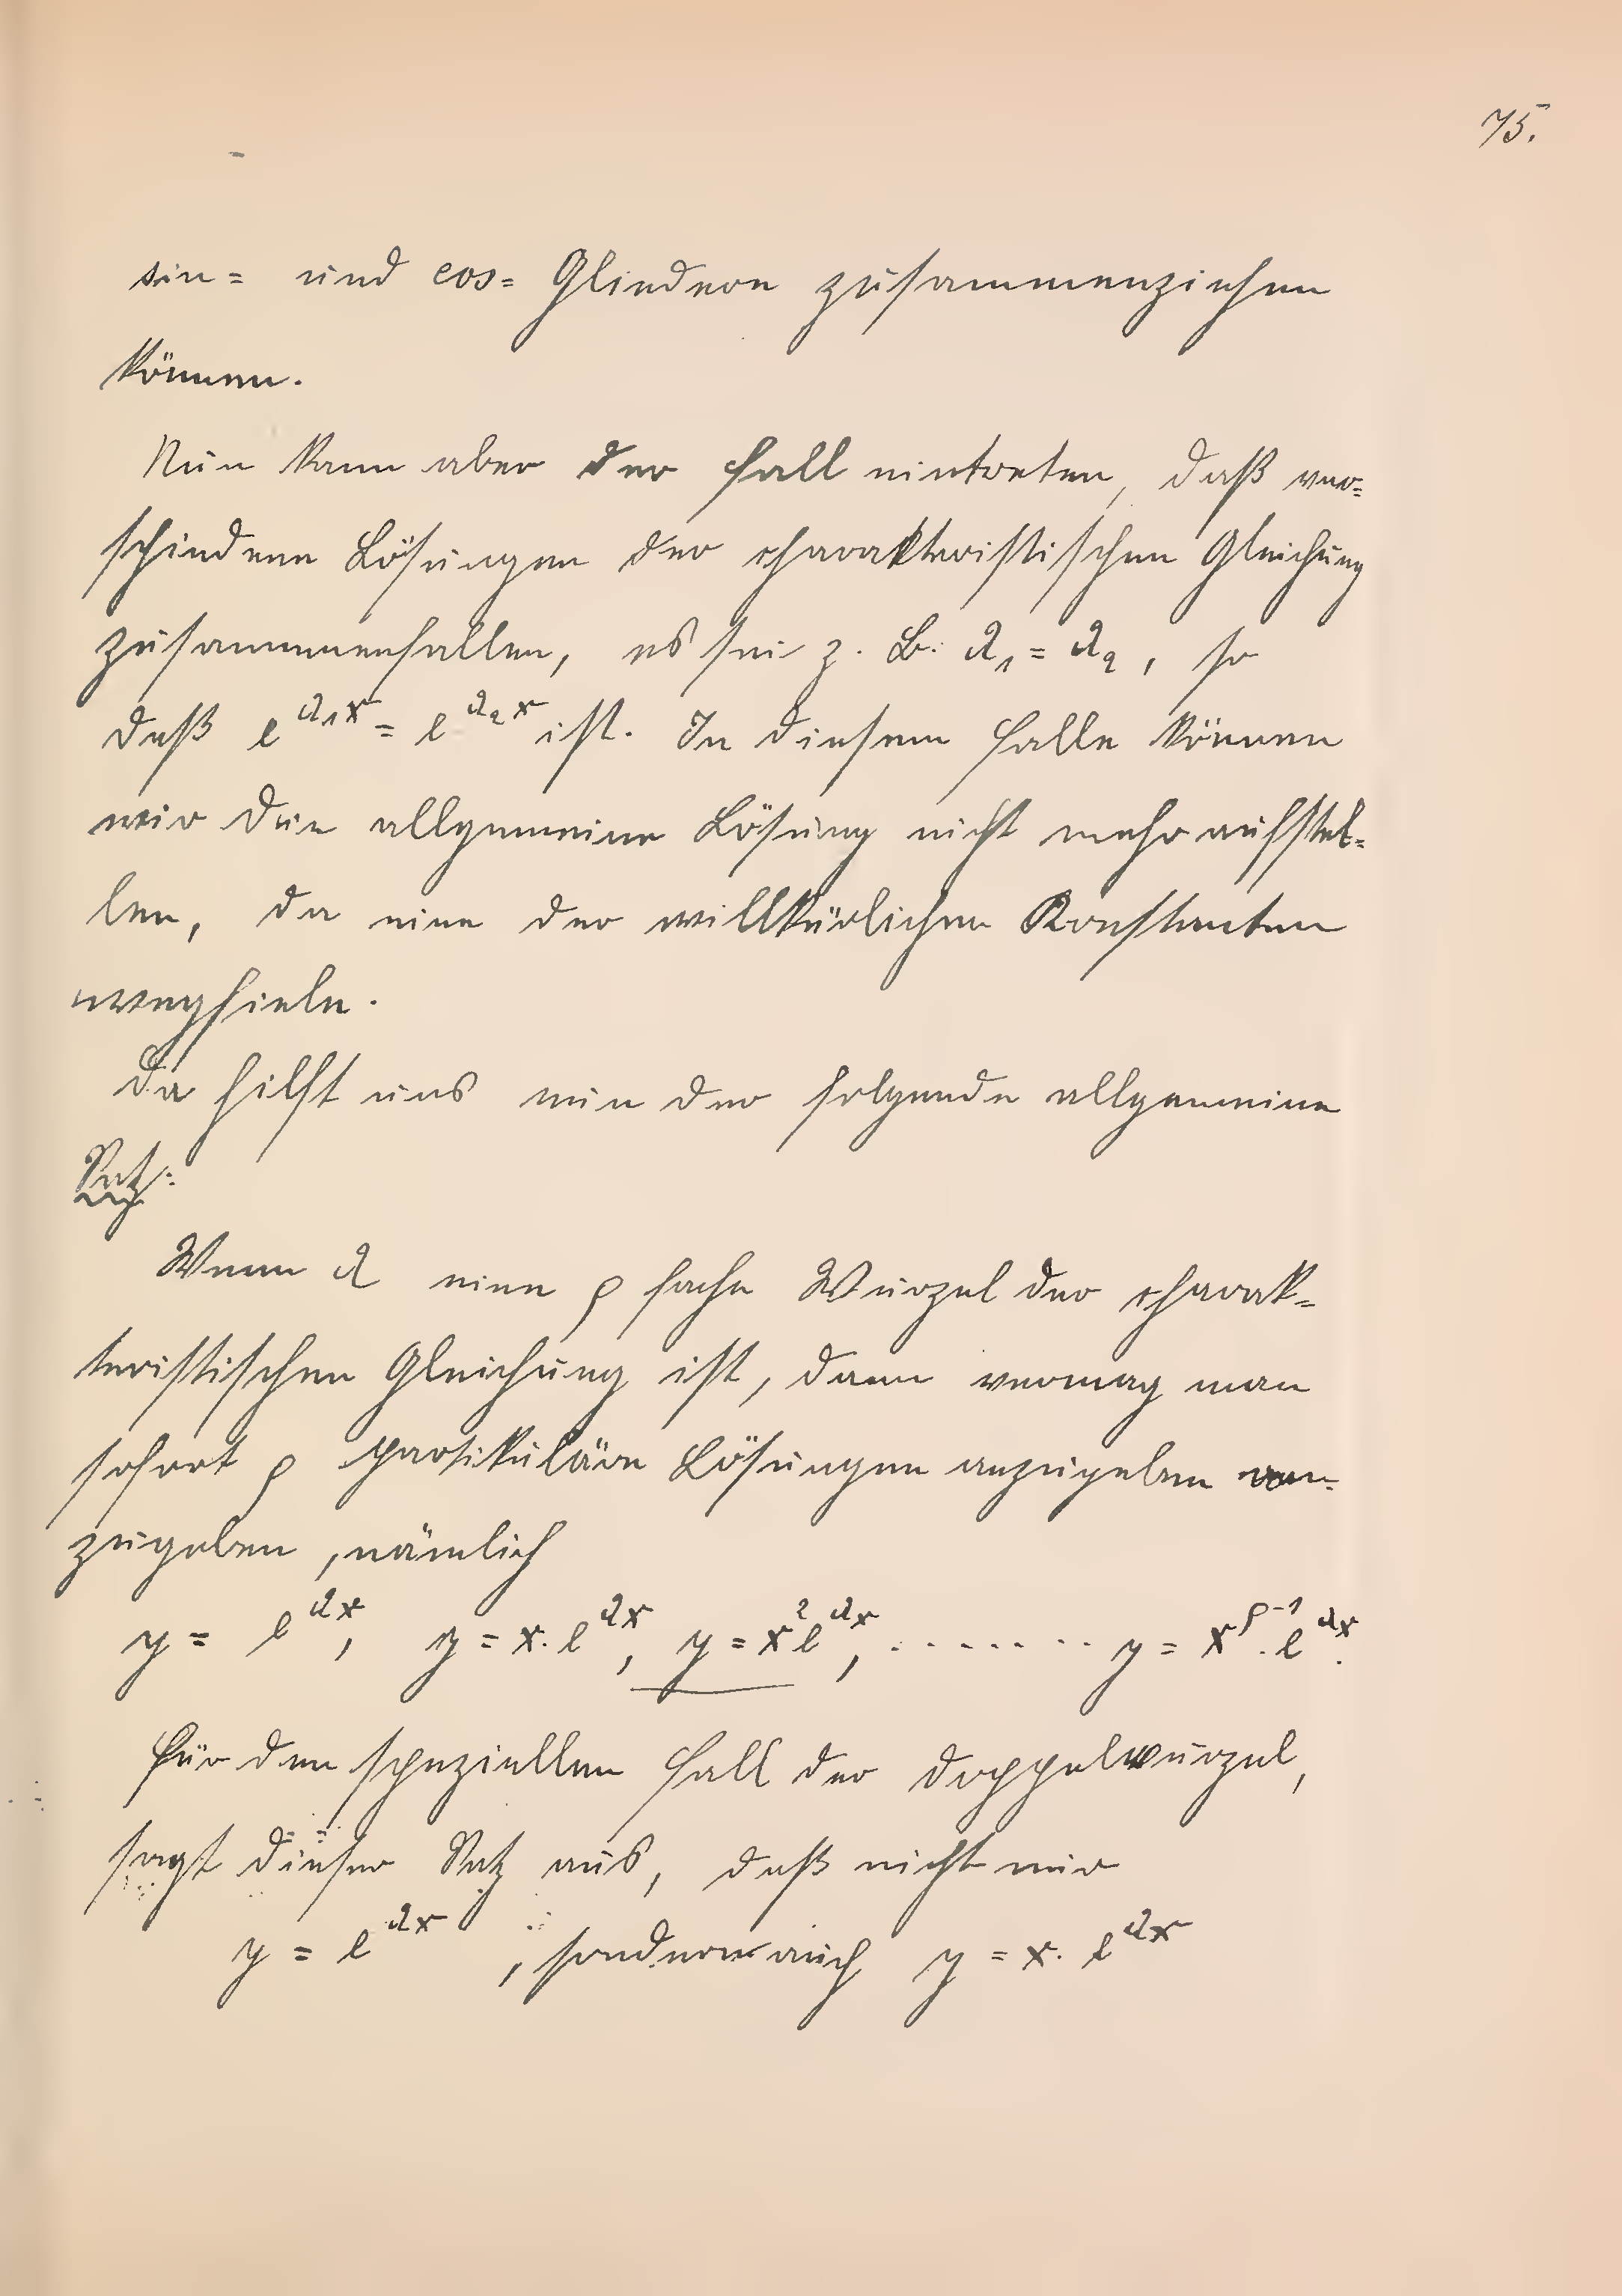 75.
sin= und cos= Gliedern zusammenziehen
können.
Nun kann aber der Fall eintreten, daß ver=
schiedene Lösungen der charakteristischen Gleichung
zusammenfallen, es sei z. B. λ₁ = λ₂, so
daß e^{λ₁x} = e^{λ₂x} ist. In diesem Falle können
wir die allgemeine Lösung nicht mehr aufstel=
len, da eine der willkürlichen Konstanten
wegfiele.
Da hilft uns nun der folgende allgemeine
Satz:
Wenn λ eine ρ fache Wurzel der charak=
teristischen Gleichung ist, dann vermag man
sofort ρ partikuläre Lösungen anzugeben an=
zugeben, nämlich
y = e^{λx}, y = x·e^{λx}, y = x²e^{λx}, ········ y = x^{ρ-1}·e^{λx}.
Für den speziellen Fall der Doppelwurzel,
sagt dieser Satz aus, daß nicht nur
y = e^{λx}, sondern auch y = x·e^{λx}